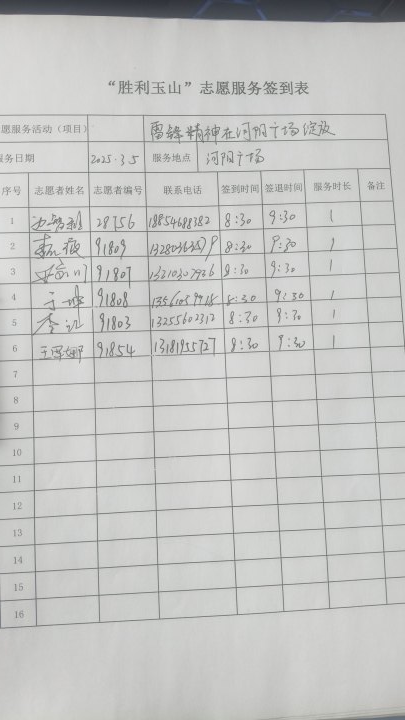 “胜利玉山”志愿服务签到表
愿服务活动（项目） 雷锋精神在河阳广场绽放
服务日期 2025.3.5 服务地点 河阳广场
序号 志愿者姓名 志愿者编号 联系电话 签到时间 签退时间 服务时长 备注
1 28756 18854688782 8:30 9:30 1
2 91809 8:30 9:30 1
3 91807 13210307936 8:30 9:30 1
4 91808 8:30 9:30 1
5 91803 13255602312 8:30 9:30 1
6 91854 13181955727 8:30 9:30 1
7
8
9
10
11
12
13
14
15
16